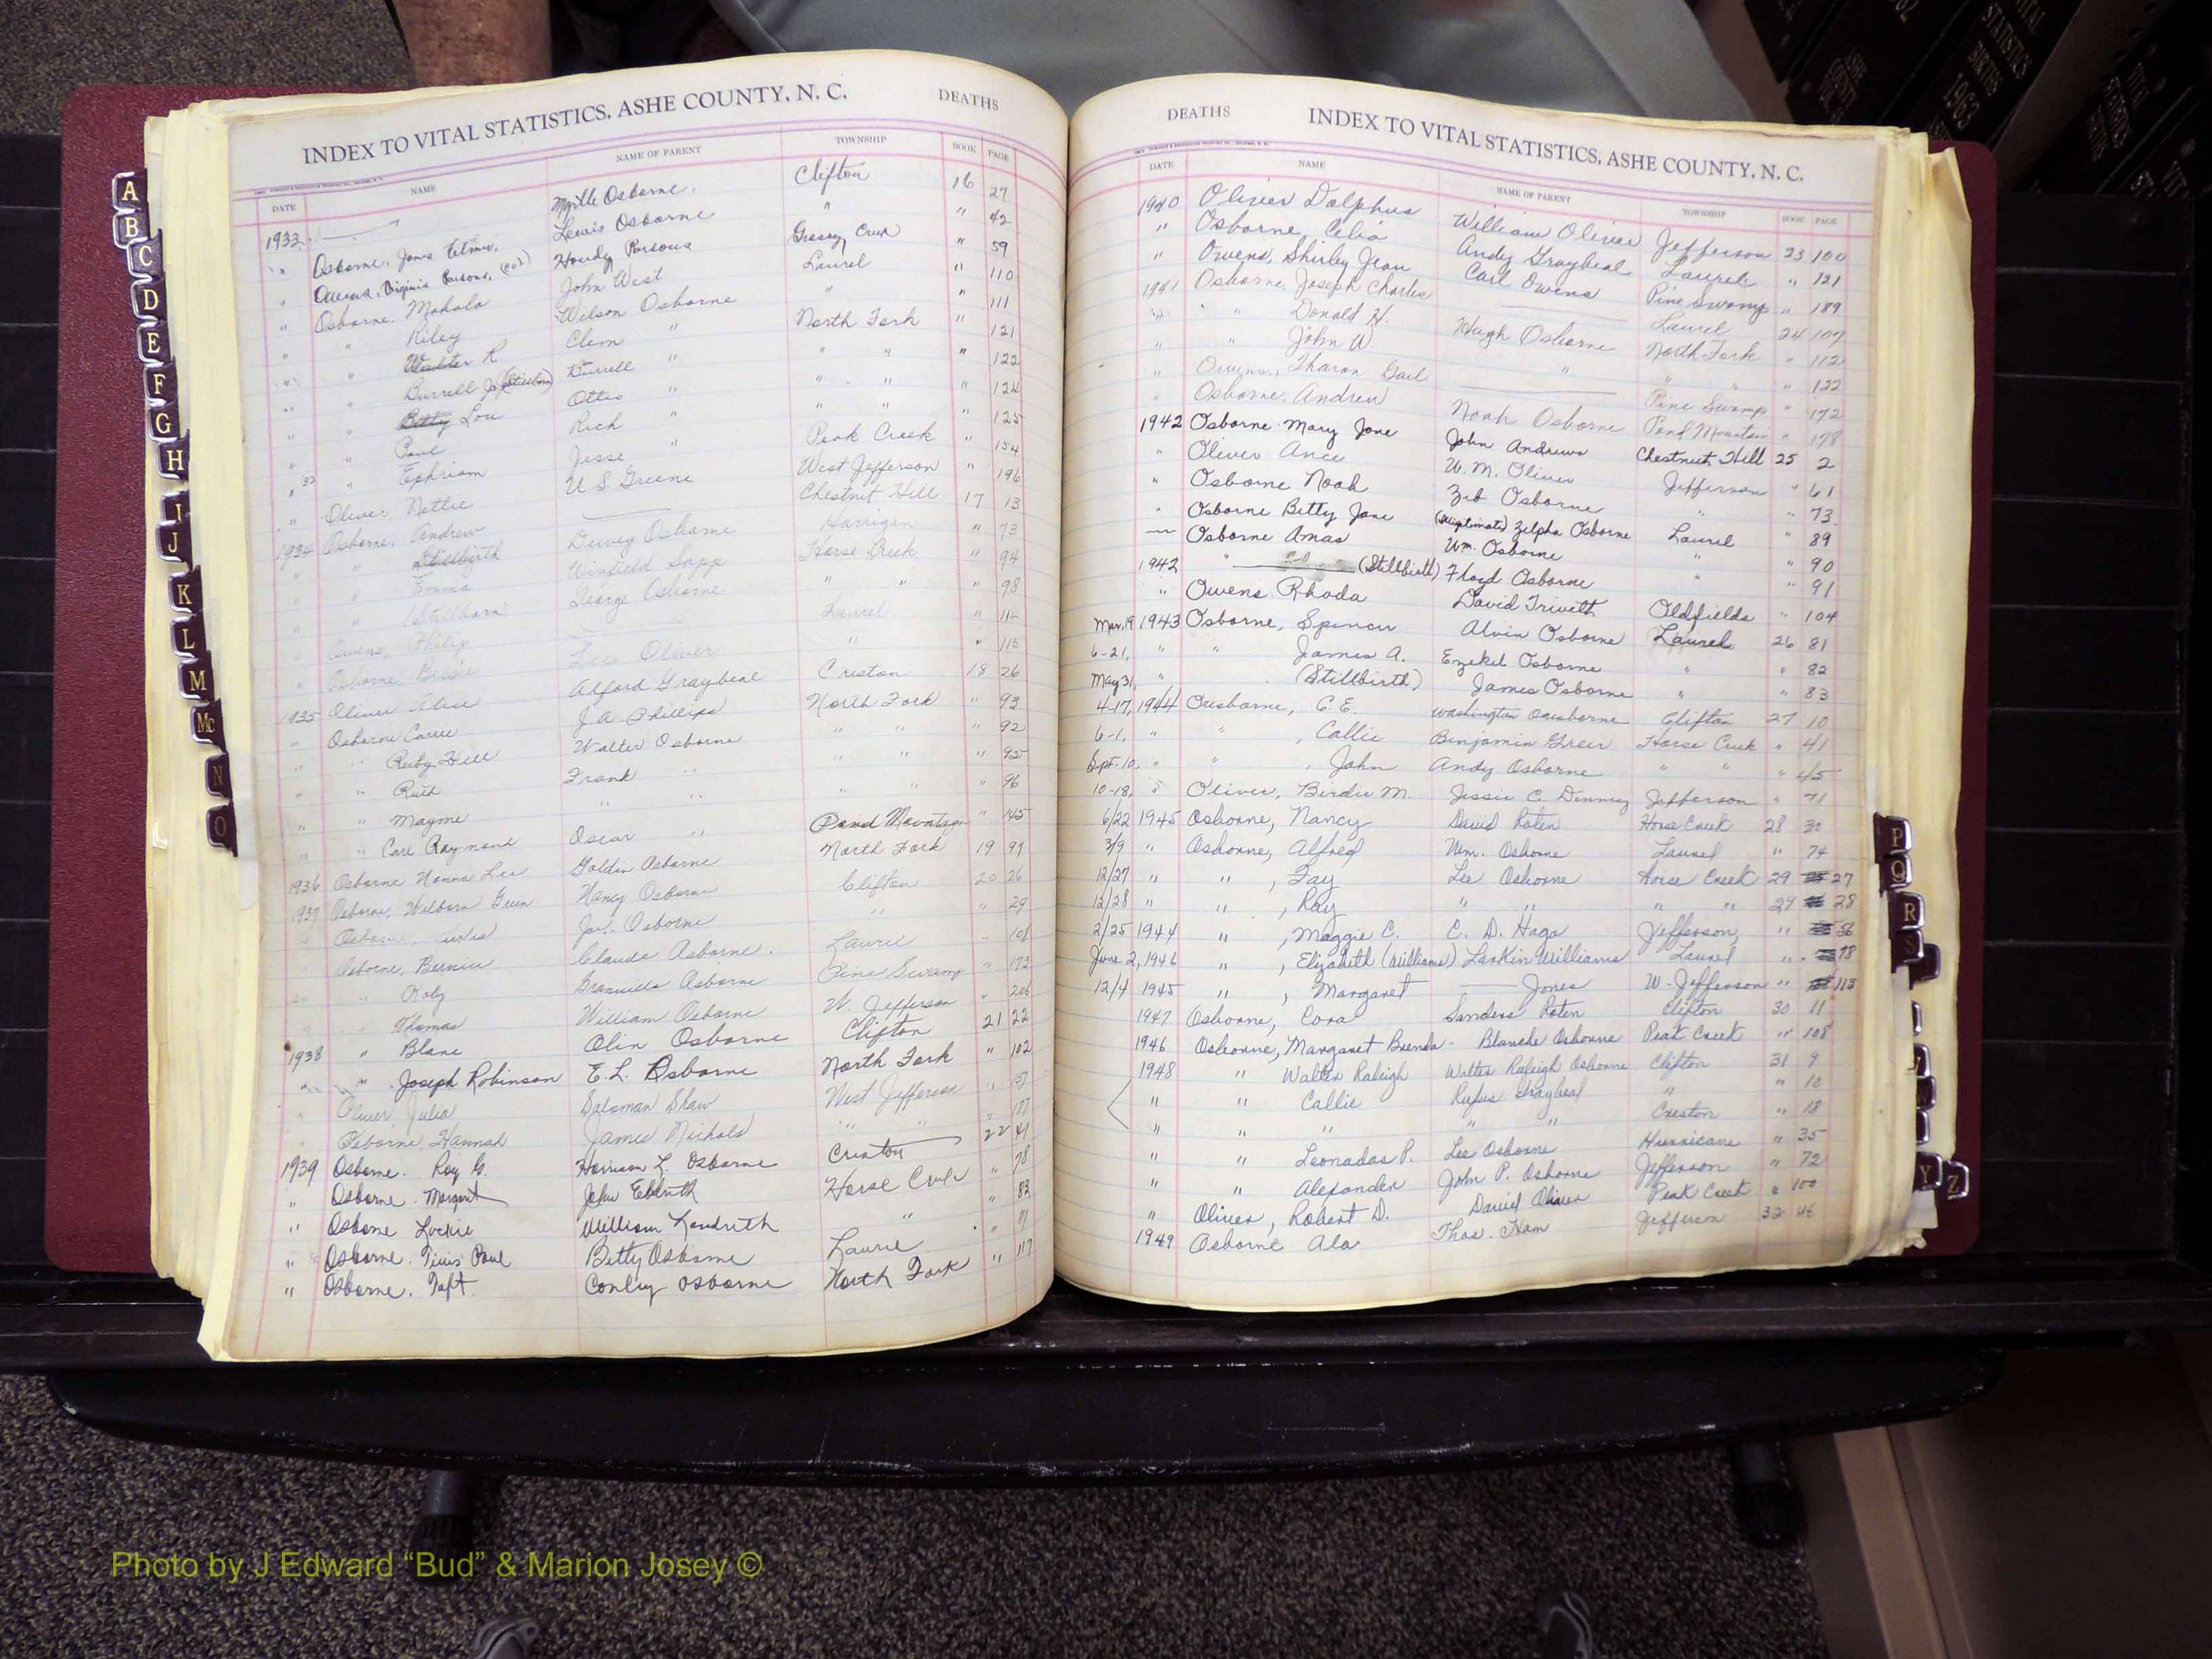 INDEX TO VITAL STATISTICS, ASHE COUNTY, N. C. DEATHS
DATE NAME NAME OF PARENT TOWNSHIP BOOK PAGE
1933 Myrtle Osborne Clifton 16 27
" Osborne, Lewis Osborne " " 42
Virginia Parsons, (Col) Parsons Grassy Creek " 59
" Osborne, Mahala John West Laurel " 110
" " Riley Wilson Osborne " " 111
" " Walter R. Clem " North Fork " 121
" " Burrell Jr. (Stillborn) Burrell " " " " 122
" " Betty Lou Ottis " " " " 124
" " Paul Rich " " " " 125
" " Ephriam Jesse " Peak Creek " 154
" Oliver, Nettie U.S. Greene West Jefferson " 196
1934 Osborne, Andrew Chestnut Hill 17 13
" " Stillbirth Dewey Osborne " 73
" " Emma Winfield Sapp Horse Creek " 94
" " (Stillborn) George Osborne " " " 98
" Owens, Philip Laurel "
" Osborne, Bessie Lee Oliver " " 115
1935 Oliver Alice Alford Graybeal Creston 18 26
" Osborne Carrie J.A. Phillips North Fork " 93
" " Ruby Hill Walter Osborne " " " 92
" " Ruth Frank " " " " 95
" " Mayme " " " " " 96
" " Carl Raymond Oscar " Pond Mountain " 145
1936 Osborne Nonna Lee Goldie Osborne North Fork 19 97
1937 Osborne, Welborn Green Nancy Osborne Clifton 20 26
" Osborne, Osborne " " 29
" Osborne, Bernice Claude Osborne Laurel "
" " Roby Granville Osborne Pine Swamp " 173
" " Thomas William Osborne W. Jefferson " 206
1938 " Blane Olin Osborne Clifton 21 22
" " Joseph Robinson E.L. Osborne North Fork " 102
" Oliver, Julia Soloman Shaw West Jefferson "
" Osborne, Hannah James Nichols " " " 177
1939 Osborne. Roy G. Harrison L. Osborne Creston 22 41
" Osborne. Margaret John Eldreth Horse Creek " 78
" Osborne William " " 82
" Osborne. Paul Betty Osborne Laurel "
" Osborne. Taft. Conley Osborne North Fork " 117
DEATHS INDEX TO VITAL STATISTICS, ASHE COUNTY, N. C.
DATE NAME NAME OF PARENT TOWNSHIP BOOK PAGE
1940 Oliver Dolphus William Oliver Jefferson 23 100
" Osborne, Celia Andy Graybeal Laurel " 121
" Owens, Shirley Jean Carl Owens Pine Swamp " 189
1941 Osborne, Joseph Charles Laurel 24 107
" " Donald H. Hugh Osborne North Fork " 112
" " John W. " " " " 122
" Owens, Sharon Gail Pine Swamp " 172
" Osborne, Andrew Noah Osborne Pond Mountain " 178
1942 Osborne Mary Jane John Andrews Chestnut Hill 25 2
" Oliver Ance W. M. Oliver Jefferson " 61
" Osborne Noah Zeb Osborne " " 73
" Osborne Betty Jane Zelpha Osborne Laurel " 89
Osborne Amas Wm. Osborne " " 90
1942 " (Stillbirth) Floyd Osborne " " 91
" Owens Rhoda David Trivett Oldfields " 104
Mar. 19 1943 Osborne, Spencer Alvin Osborne Laurel 26 81
6-21, " " James A. Ezekil Osborne " " 82
May 31, " (Stillbirth) James Osborne " " 83
4-17, 1944 Ousborne, C. E. Washington Ousborne Clifton 27 10
6-1, " " , Callie Benjamin Greer Horse Creek " 41
Sept. 10, " " , John Andy Osborne " " " 45
10-18, " Oliver, Birdie M. Jessie C. Denney Jefferson " 71
6/22 1945 Osborne, Nancy David Roten Horse Creek 28 30
3/9 " Osborne, Alfred Wm. Osborne Laurel " 74
12/27 " " , Fay Lee Osborne Horse Creek 29 27
12/28 " " , Ray " " " " 29 28
2/25 1944 " , Maggie C. C. D. Haga Jefferson " 56
June 2, 1946 " , Elizabeth (Williams) Larkin Williams Laurel " 78
12/4 1945 " , Margaret Jones W. Jefferson " 113
1947 Osborne, Cora Sanders Roten Clifton 30 11
1946 Osborne, Margaret Brenda Blanche Osborne Peak Creek " 108
1948 " Walter Raleigh Walter Raleigh Osborne Clifton 31 9
" " Callie Rufus Graybeal " " 10
" " " " " Creston " 18
" " Leonadas P. Lee Osborne Hurricane " 35
" " Alexander John P. Osborne Jefferson " 72
" Oliver, Robert D. David Oliver Peak Creek " 100
1949 Osborne Ala Thos. Ham Jefferson 32 46
A
B
C
D
E
F
G
H
I
J
K
L
M
Mc
N
O
P
Q
R
S
Y
Z
VITAL STATISTICS BIRTHS 1963
Photo by J Edward “Bud” & Marion Josey ©